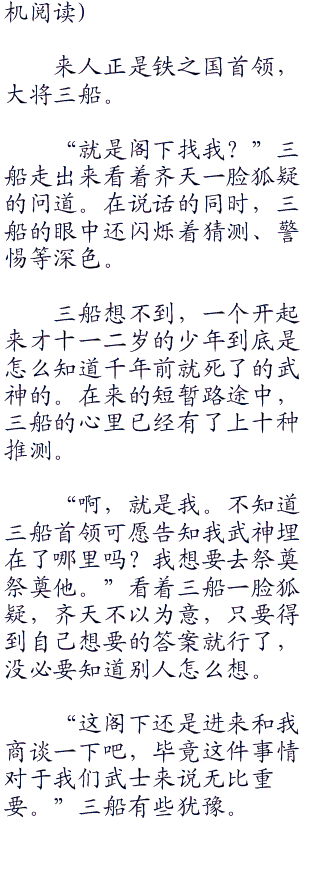 机阅读)
来人正是铁之国首领，
大将三船。
“就是阁下找我？”三
船走出来看着齐天一脸狐疑
的问道。在说话的同时，三
船的眼中还闪烁着猜测、警
惕等深色。
三船想不到，一个开起
来才十一二岁的少年到底是
怎么知道千年前就死了的武
神的。在来的短暂路途中，
三船的心里已经有了上十种
推测。
“啊，就是我。不知道
三船首领可愿告知我武神埋
在了哪里吗？我想要去祭奠
祭奠他。”看着三船一脸狐
疑，齐天不以为意，只要得
到自己想要的答案就行了，
没必要知道别人怎么想。
“这阁下还是进来和我
商谈一下吧，毕竟这件事情
对于我们武士来说无比重
要。”三船有些犹豫。